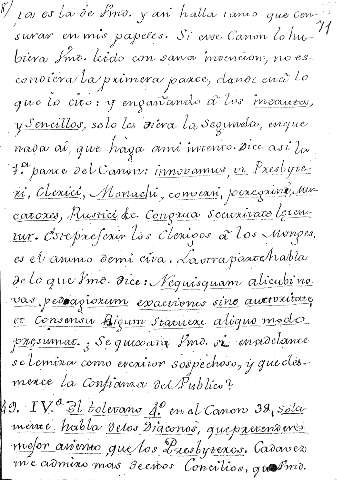 8)
71
tos es la de Vmd. y asi halla tanto que cen-
surar en mis papeles. Si ese Canon lo hu-
biera Vmd. leido con sana intencion, no es-
condiera la primera parte, donde està lo
que lo cito: y engañando à los incautos,
y Sencillos, solo les diera la Segunda, en que
nada ai, que haga ami intento. Dice asi la
1.ª parte del Canon: innovamus, ut Presbyte-
ri, Clerici, Monachi, conversi, peregrini, Mer-
catores, Rustici &c Congrua Securitate Lęten-
tur. Este preferir los Clerigos à los Monges,
es el animo de mi cita. La otra parte habla
de lo que Vmd. dice: Nequisquam alicubi no
vas pedagiorum exactiones sine autoritate,
et Consensu Rigum Statuere aliquo modo
presumat. Se quexarà Vmd. si en adelante
se le mira como escritor sospechoso, y que des-
merece la Confianza del Publico?
49. IV.º El toledano 4.º en el Canon 39, Sola-
mente, habla de los Diaconos, que pretenden
mejor asiento que los Presbyteros. Cada vez
me admiro mas de estos Concilios, que Vmd.